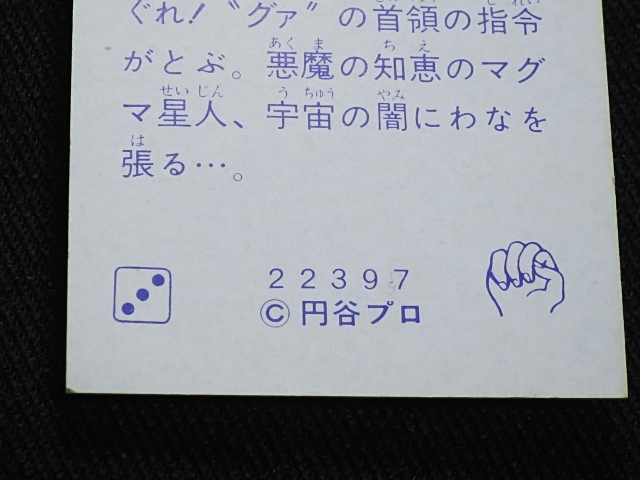 ぐれ!〝グァ〟の首領の指令
がとぶ。悪魔の知恵のマグ
マ星人、宇宙の闇にわなを
張る…。
22397
©円谷プロ